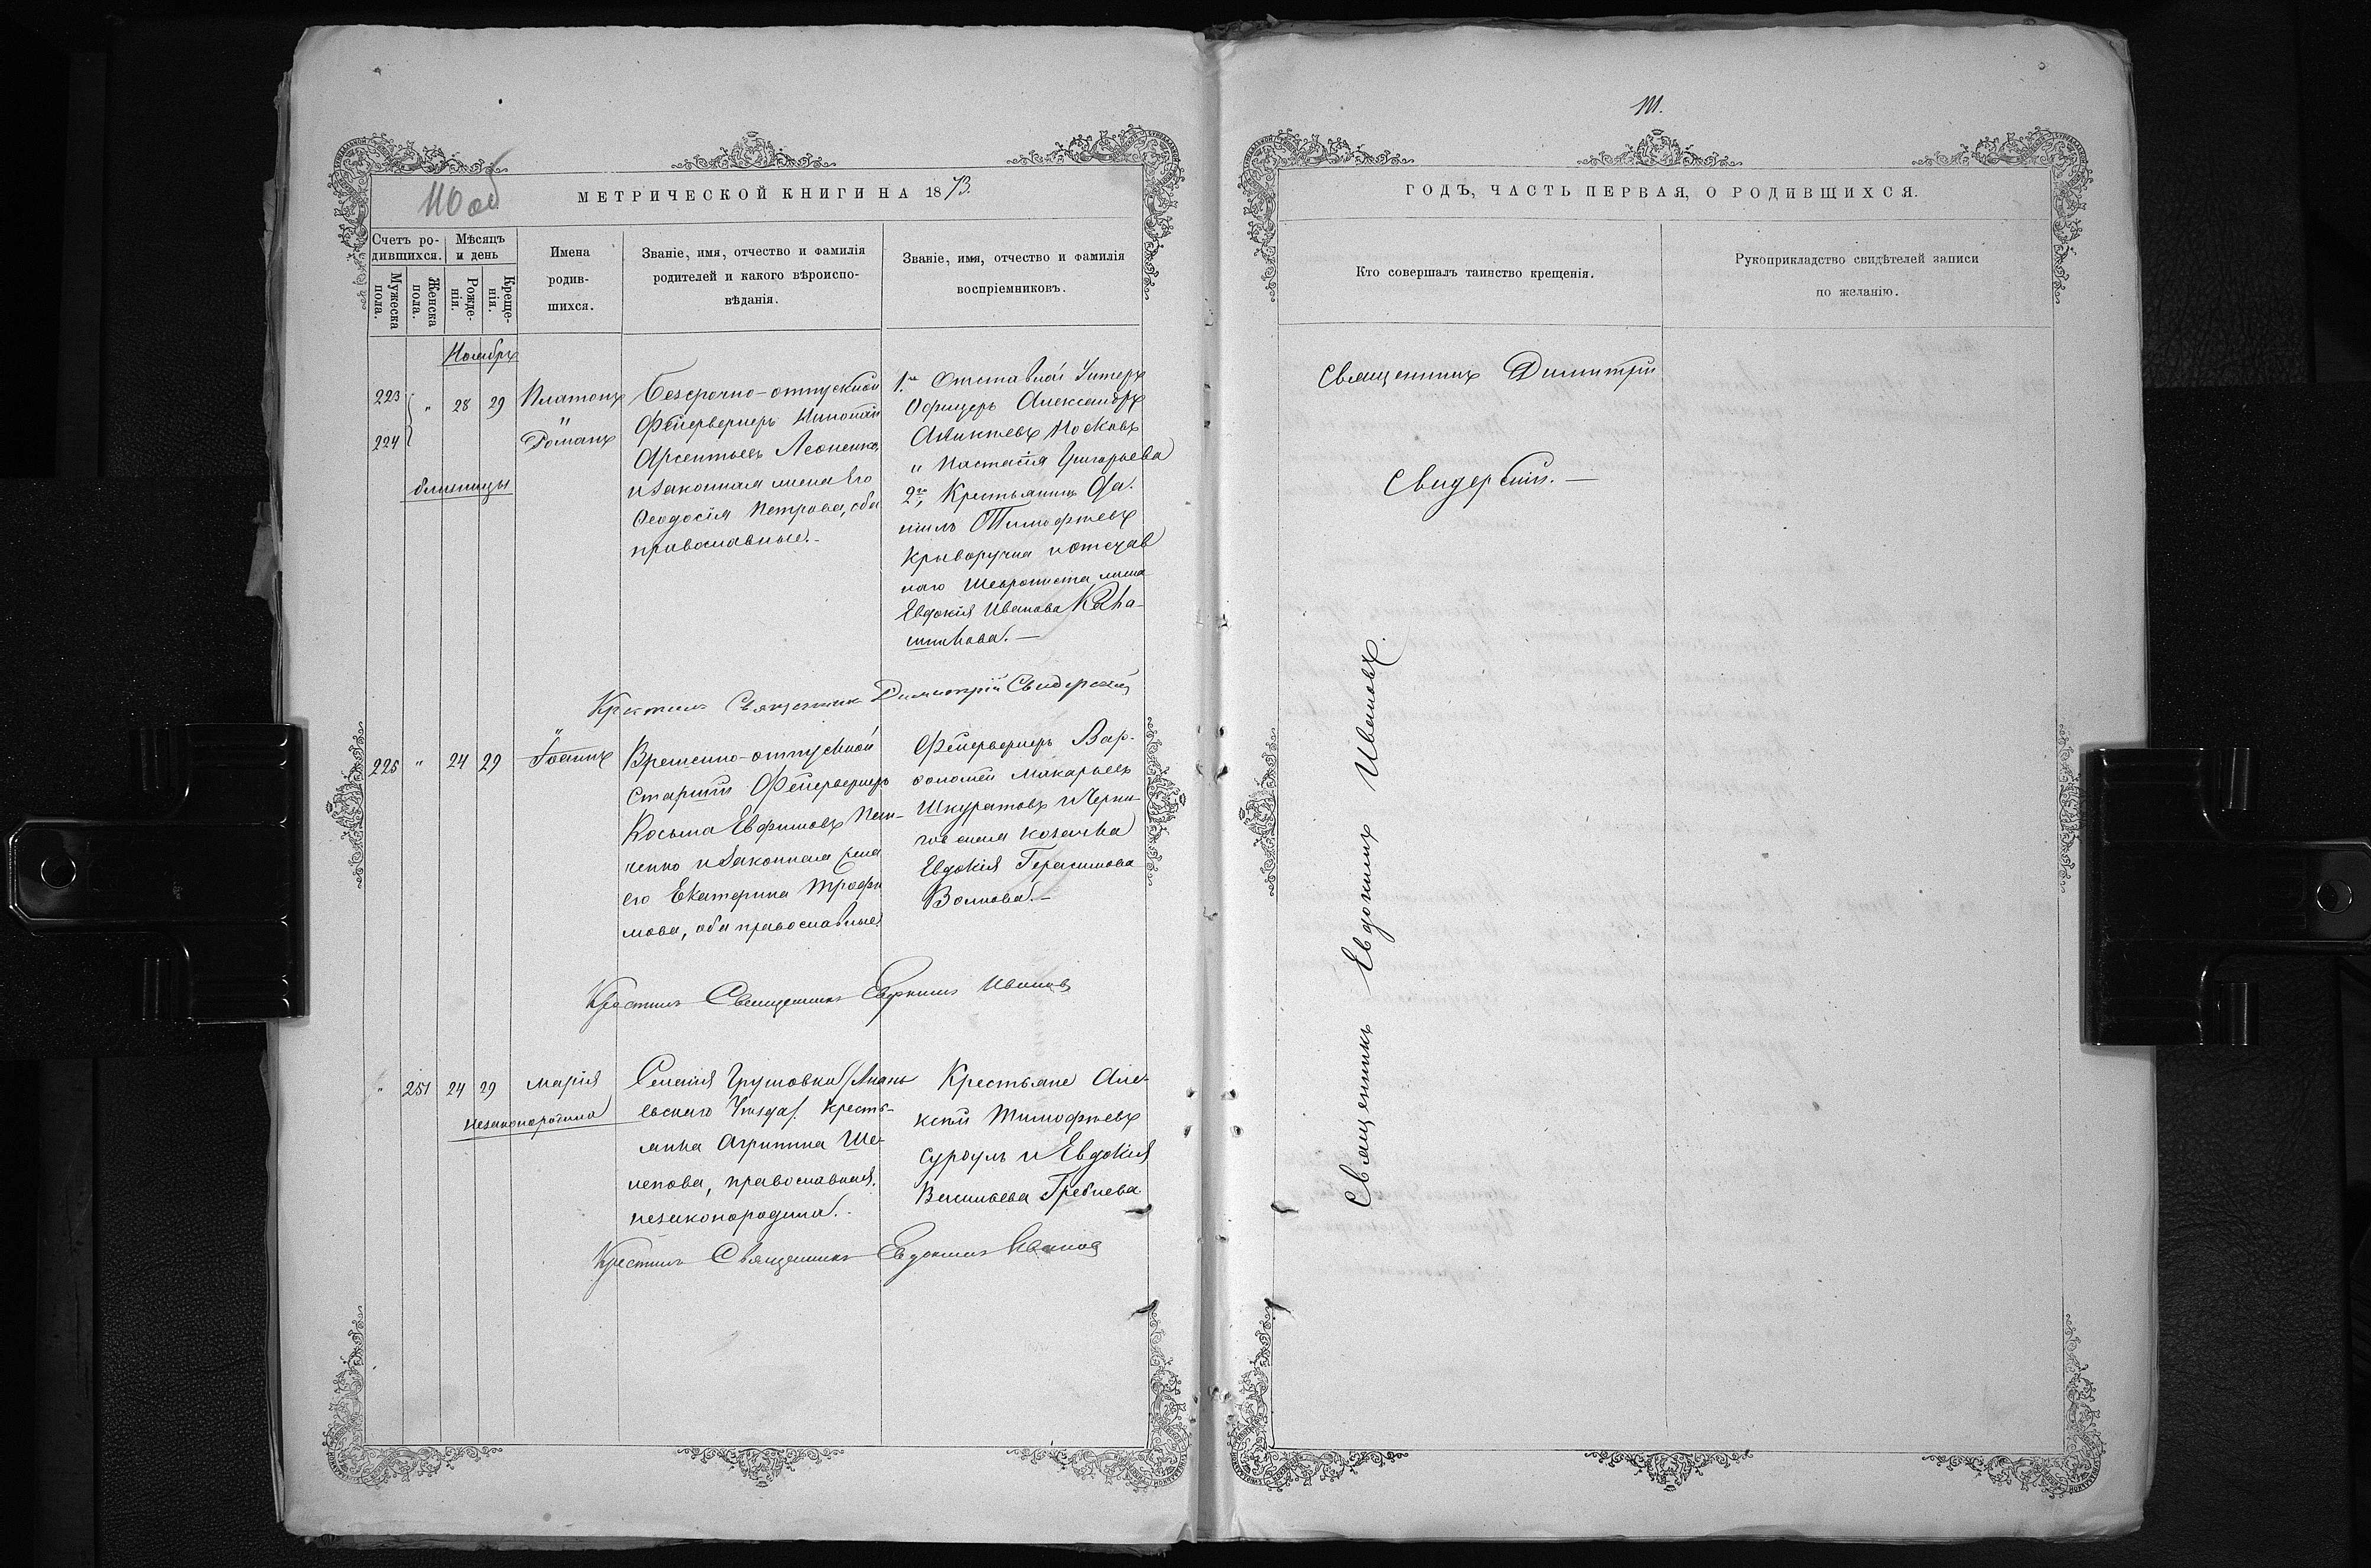 110 об
МЕТРИЧЕСКОЙ КНИГИ НА 1873.
Счетъ ро-
дившихся.
Мѣсяцъ
и день
Мужеска
пола.
Женска
пола.
Рожде-
нія.
Креще-
нія.
Имена
родив-
шихся.
Званіе, имя, отчество и фамилія
родителей и какого вѣроиспо-
вѣданія.
Званіе, имя, отчество и фамилія
воспріемниковъ.
Ноябрь
223
224
"
28
29
Платонъ
"
Романъ
близнецы
Безсрочно-отпускной
Фейерверкеръ
Арсентьевъ Леоненко,
и законная жена его
Феодосія Петрова, оба
православные.-
1. Отставной Унтеръ
Офицеръ Александръ
"
Григорьева
2. Крестьянинъ Да-
ніилъ Тимофѣевъ
Криворучка и
жена
Евдокія Иванова
Крестилъ Священникъ Димитрій Свидерскій
225
"
24
29
Іоаннъ
Временно-отпускной
Старшій Фейерверкеръ
Косьма Евфимовъ
и законная жена
его Екатерина Трофи
мова, оба православные.
Фейерверкеръ Вар-
ѳоломей Макарьевъ
Шкуратовъ и Черни-
говская козачка
Евдокія Герасимова
Волкова.-
Крестилъ Священникъ Евдокимъ Ивановъ
"
251
24
29
Марія
незаконорожденна
Селенія Грушовки (Анань
евскаго Уѣзда) кресть-
янка Агрипина Ше-
лепова, православная.
незаконорожденна.-
Крестьяне Але-
ксѣй Тимофѣевъ
и Евдокія
Васильева Гребнева
Крестилъ Священникъ Евдокимъ Ивановъ
111.
ГОДЪ, ЧАСТЬ ПЕРВАЯ, О РОДИВШИХСЯ.
Кто совершалъ таинство крещенія.
Рукоприкладство свидѣтелей записи
по желанію.
Священникъ Димитрій
Свидерскій.-
Священникъ Евдокимъ Ивановъ.